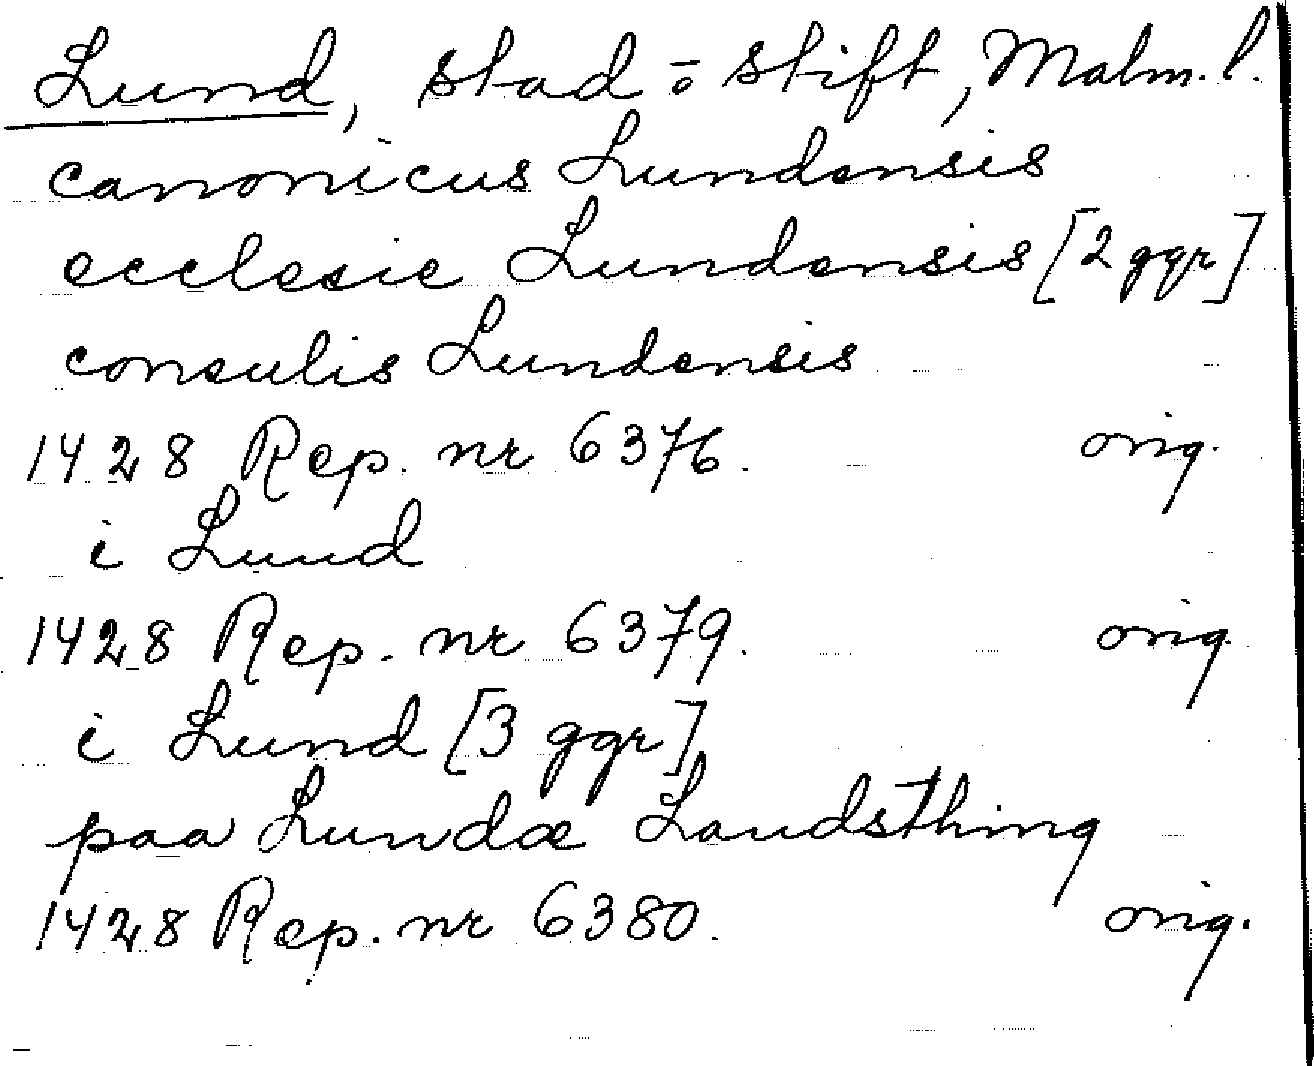 Lund, stad o stift, Malm. l.
canonicus Lundensis
ecclesie Lundensis [2 ggr]
consulis Lundensis
1428 Rep. nr 6376. orig.
i Lund
1428 Rep. nr 6379. orig.
i Lund [3 ggr]
paa Lundæ Landsthing
1428 Rep. nr 6380. orig.